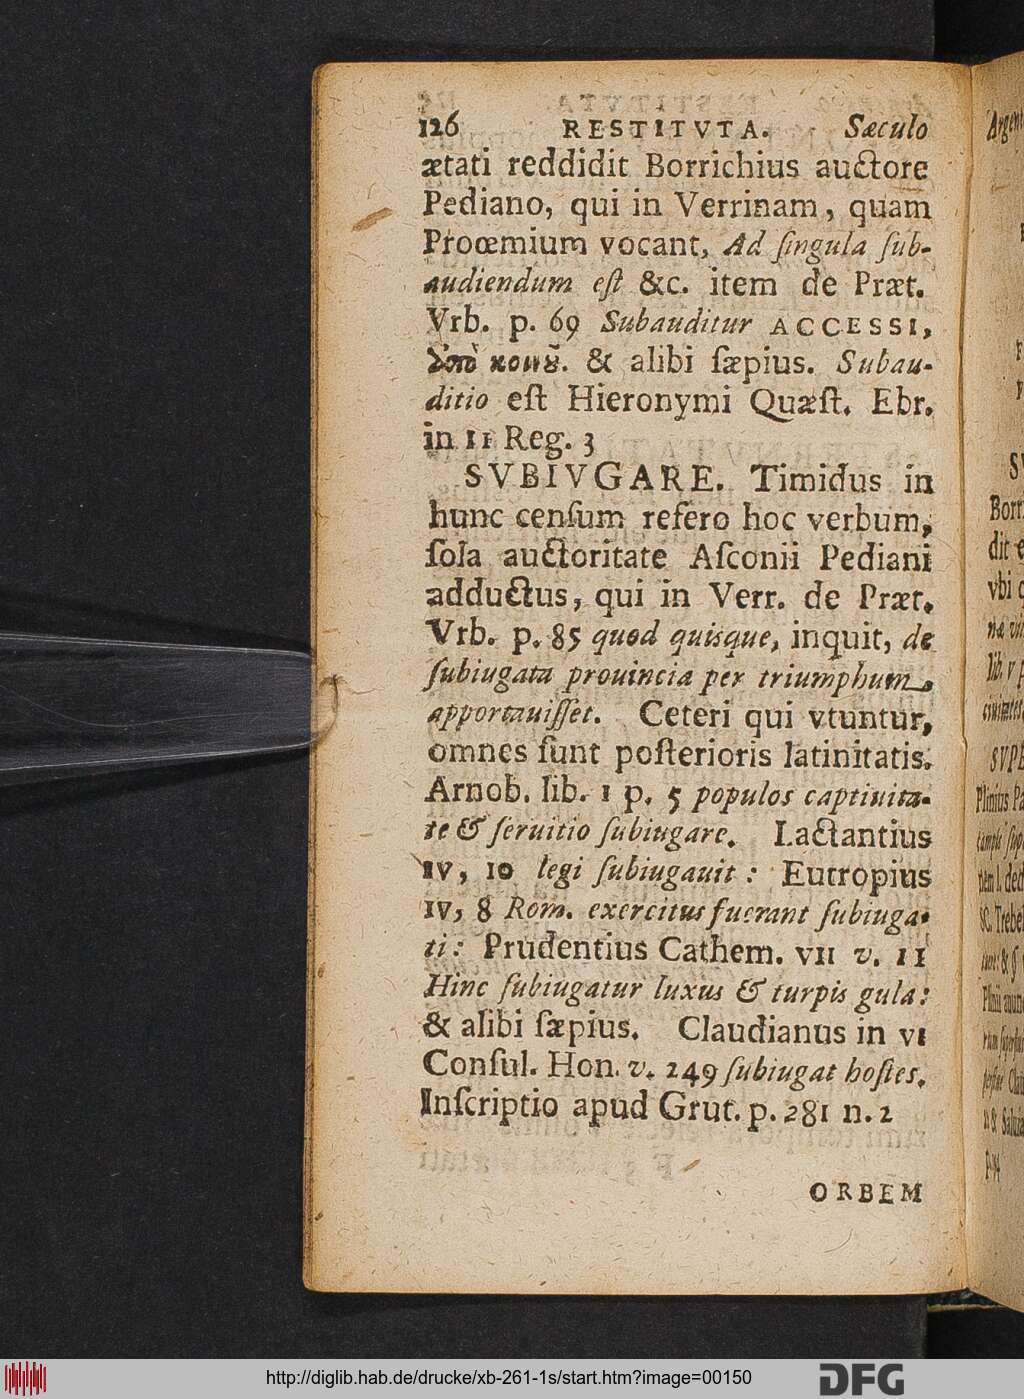 126 RESTITVTA. Sæculo
ætati reddidit Borrichius auctore
Pediano, qui in Verrinam, quam
Prooemium vocant, Ad ſingula ſub-
audiendum eſt &c. item de Præt.
Vrb. p. 69 Subauditur ACCESSI,
ἀπὸ κοινȣ̃. & alibi ſæpius. Subau-
ditio eſt Hieronymi Quæſt. Ebr.
in II Reg. 3
SVBIVGARE. Timidus in
hunc cenſum refero hoc verbum,
ſola auctoritate Aſconii Pediani
adductus, qui in Verr. de Præt.
Vrb. p. 85 quod quisque, inquit, de
ſubiugata prouincia per triumphum
apportauiſſet. Ceteri qui vtuntur,
omnes ſunt poſterioris latinitatis.
Arnob. lib. I p. 5 populos captiuita-
te & ſeruitio ſubiugare. Lactantius
IV, 10 legi ſubiugauit: Eutropius
IV, 8 Rom. exercitus fuerant ſubiuga-
ti: Prudentius Cathem. VII v. 11
Hinc ſubiugatur luxus & turpis gula:
& alibi ſæpius. Claudianus in VI
Conſul. Hon. v. 249 ſubiugat hoſtes.
Inſcriptio apud Grut. p. 281 n. 2
ORBEM
http://diglib.hab.de/drucke/xb-261-1s/start.htm?image=00150
DFG